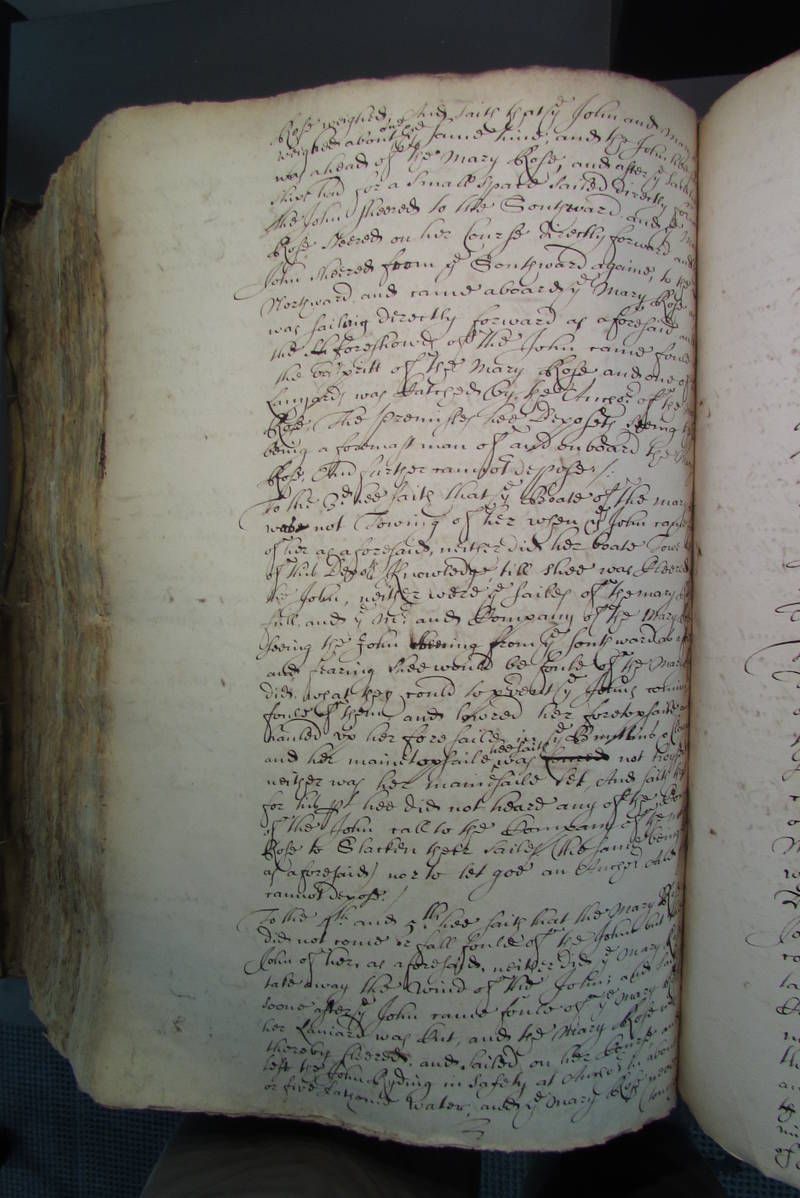 Rose weighed, And saith that ye John and Mary
weighed about one and the same time, and the John
was ahead of the Mary Rose, and after ye said
shipps had for a small space sailed directly
the John sheered to the Southward and ye
Rose steered on her Course directly forward and
John sheered from ye Southward againe, to the
Northward and came aboard ye Mary Rose
was sailing directly forward as aforesaid and
the foreshrowds of the John came foule
the boltspritt of the Mary Rose and one of
Lanyards was Catched by the Anchor of the
Rose, The premisses hee deposeth seeing
being a foremast man of and onboard the
Rose, And further cannot depose /:
To the 3d hee saith that ye Boate of the mary
was not Towing of her when ye John came
of her as aforesaid, neither did her boate Towe
of this depots knowledge till shee was Cleered
the John, neither were ye sailes of the mary
full, and ye Mr and Company of the Mary
Seeing the John sheering from ye southward
and fearing shee would be foule of the Mary
did what they could to prevent ye Johns coming
foule of them and lowred her foretopsaile
hauled up her foresaile in ye Brayles,
and her maine topsaile hee saith was not
neither was her mainsaile set, And saith
for his pt hee did not heare any of the
of the John call to the Company of the
Rose to Slacken their sailes (the same being
as aforesaid) nor to let goe an Anchor And
cannot depose /
To the 4th and 5th hee saith that the Mary
did not come or fall foule of the John but
John of her, as aforesaid, neither did ye Mary
take away the wind of the John; and
soone after ye John came foule of ye Mary
her Laniard was Cut, and the Mary Rose
thereby Cleered, and sailed on her Course, and
left the John Ryding in safety at Anchor in about
or five fathome water, and ye Mary Rose